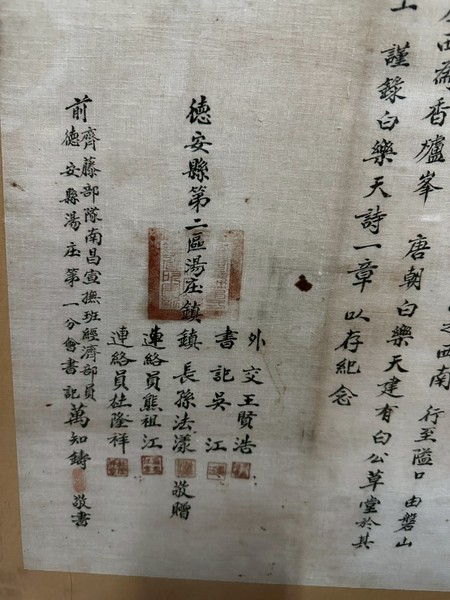 西為香爐峯　唐朝白樂天建有白公草堂於其
之西南　行至隘口　由磐山
上　謹錄白樂天詩一章　以存紀念
外交王贤浩
書記吳江
德安縣第二區湯庄鎮鎮長孫法漾　敬贈
連絡員熊祖江
連絡員杜隆祥
齊藤部隊南昌宣撫班經濟部員
前德安縣湯庄第一分會書記萬知鑄　敬書